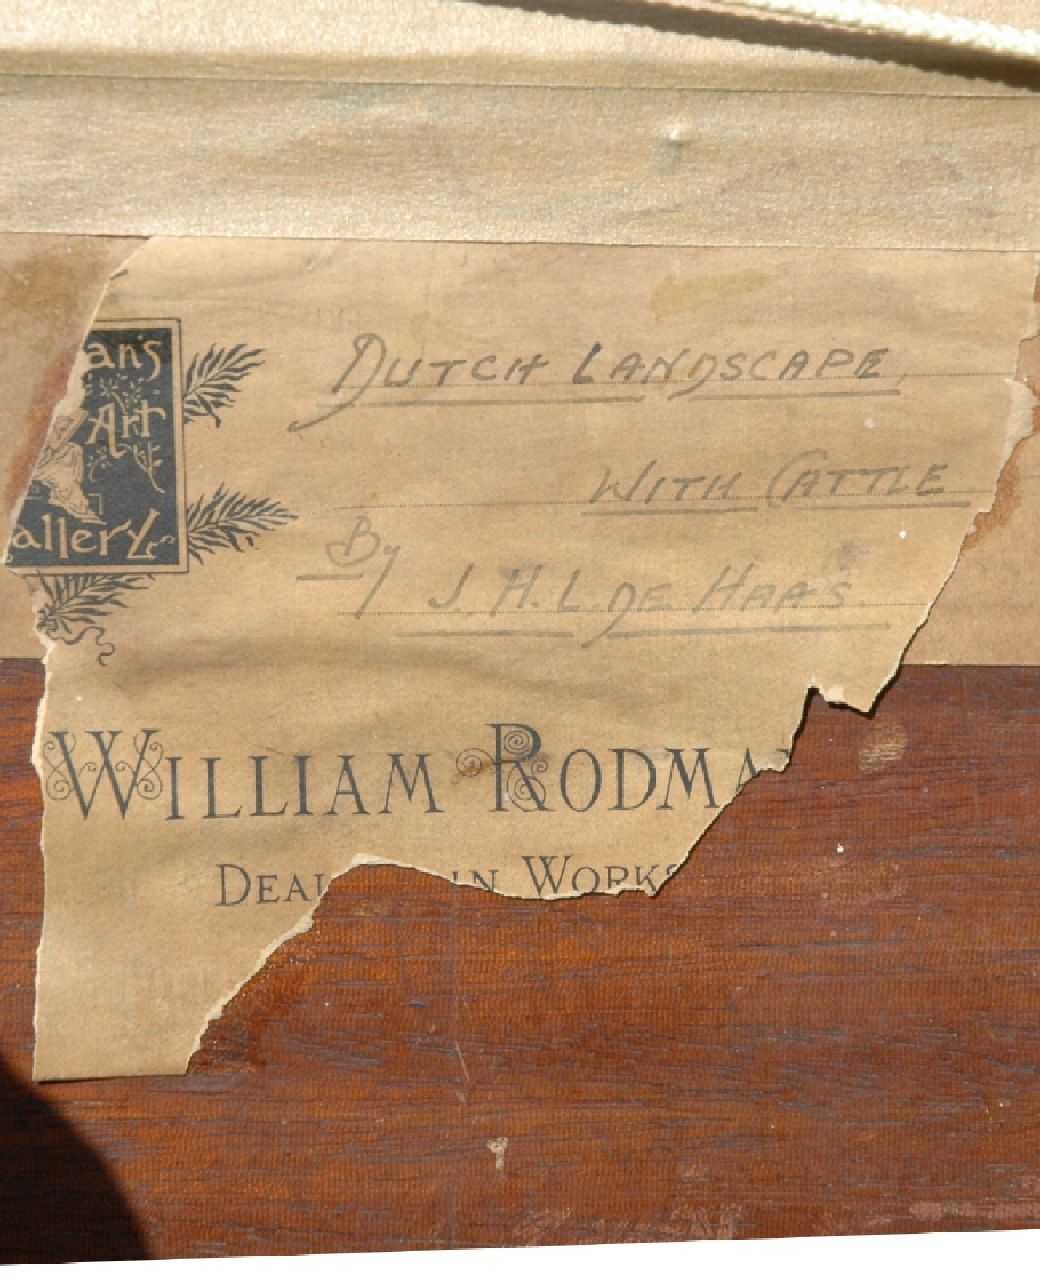 an's
Art
allery
DUTCH LANDSCAPE,
WITH CATTLE
By J. H. L. DE HAAS
WILLIAM RODMA
DEAL IN WORKS